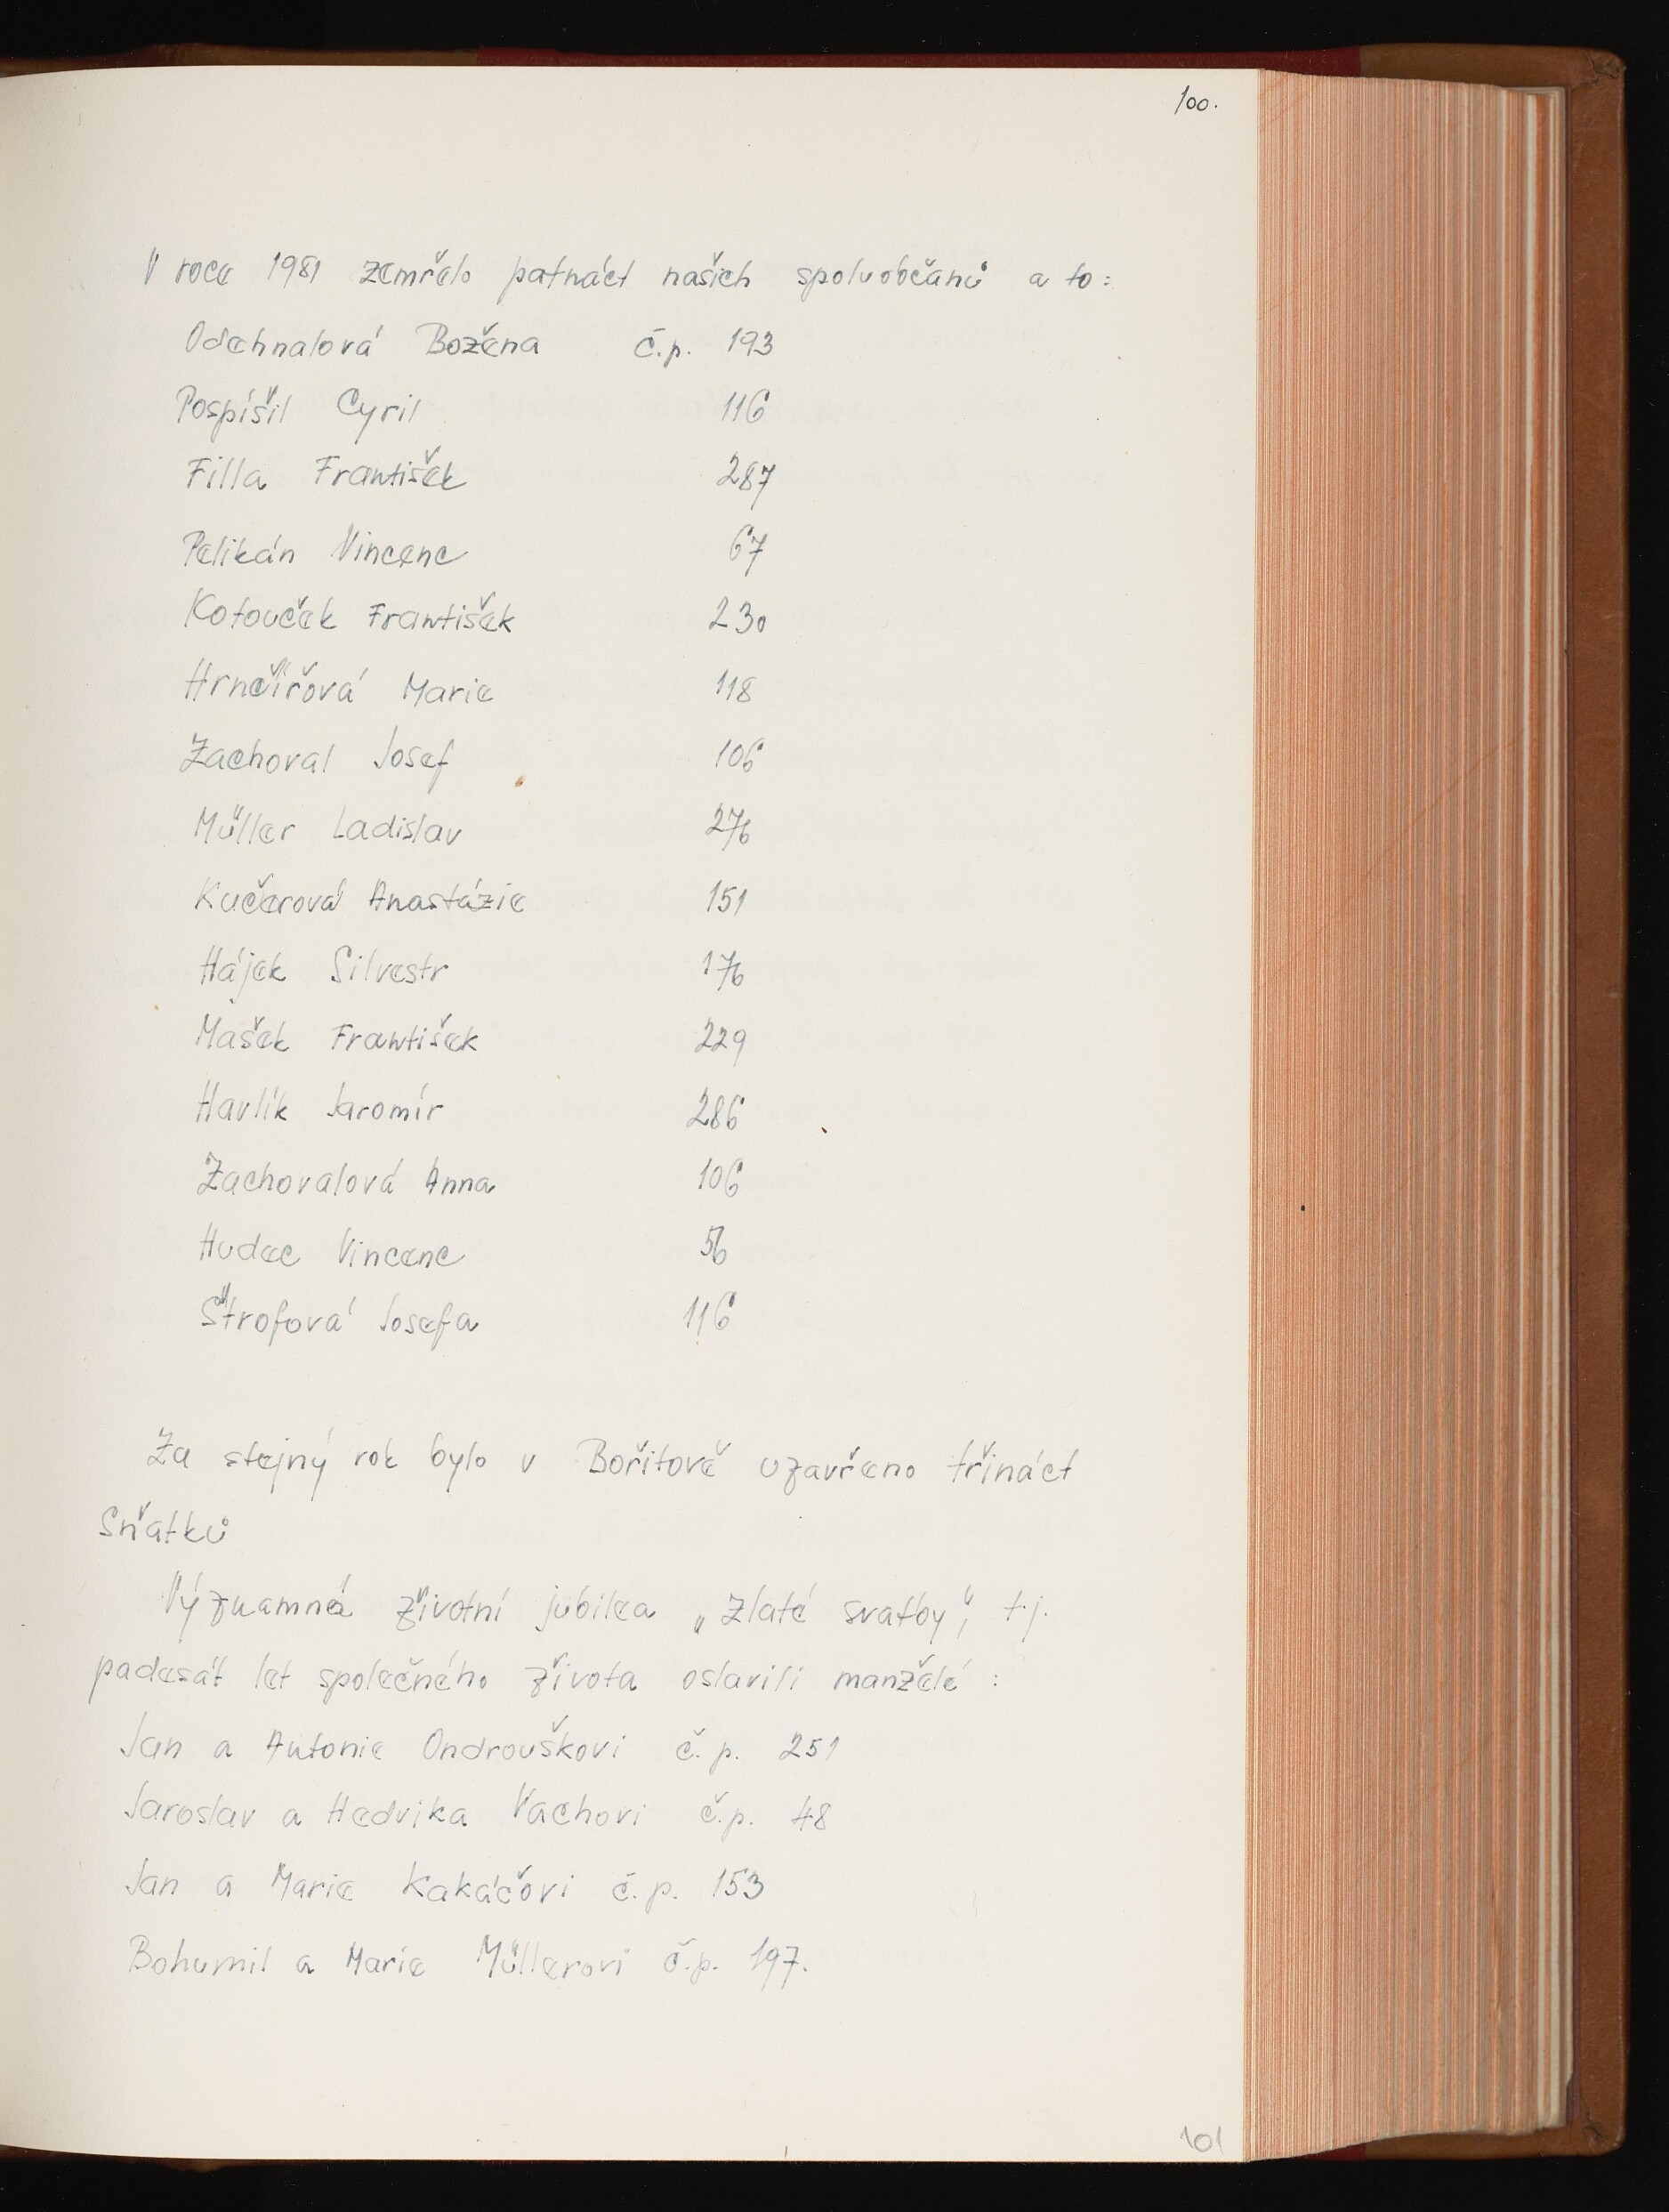 100.
V roce 1981 zemřelo patnáct našich spoluobčanů a to:
Odehnalová Božena č.p. 193
Pospíšil Cyril 116
Filla František 287
Pelikán Vincenc 67
Kotouček František 230
Hrnčířová Marie 118
Zachoval Josef 106
Müller Ladislav 276
Kučerová Anastázie 151
Hájek Silvestr 176
Mašek František 229
Havlík Jaromír 286
Zachovalová Anna 106
Hudec Vincenc 56
Štrofová Josefa 116
Za stejný rok bylo v Bořitově uzavřeno třináct
sňatků
Významná životní jubilea „Zlaté svatby“, t.j.
padesát let společného života oslavili manželé:
Jan a Antonie Ondrouškovi č.p. 251
Jaroslav a Hedvika Vachovi č.p. 48
Jan a Marie Kakáčovi č.p. 153
Bohumil a Marie Müllerovi č.p. 197.
101